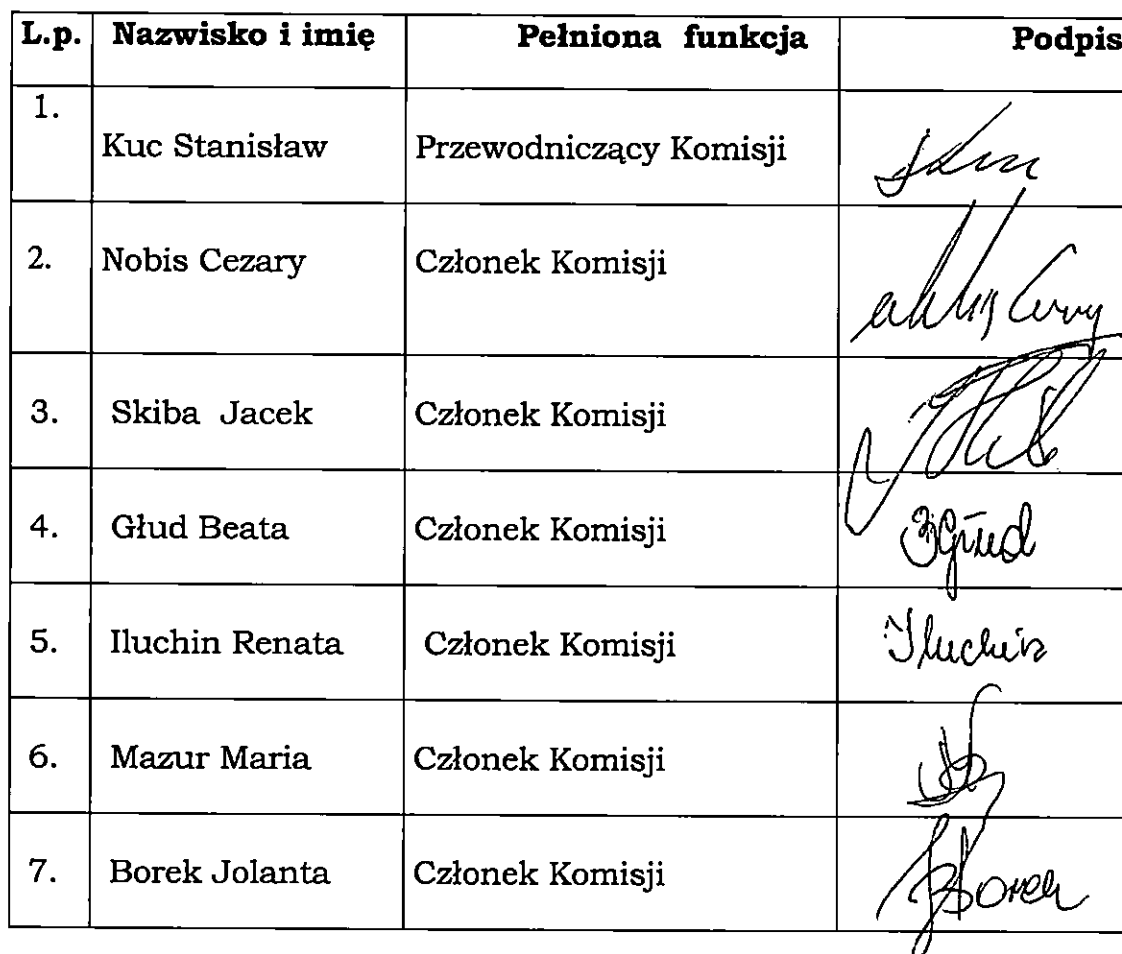 L.p. Nazwisko i imię Pełniona funkcja Podpis
1. Kuc Stanisław Przewodniczący Komisji
2. Nobis Cezary Członek Komisji
3. Skiba Jacek Członek Komisji
4. Głud Beata Członek Komisji BGłud
5. Iluchin Renata Członek Komisji Iluchin
6. Mazur Maria Członek Komisji
7. Borek Jolanta Członek Komisji JBorek